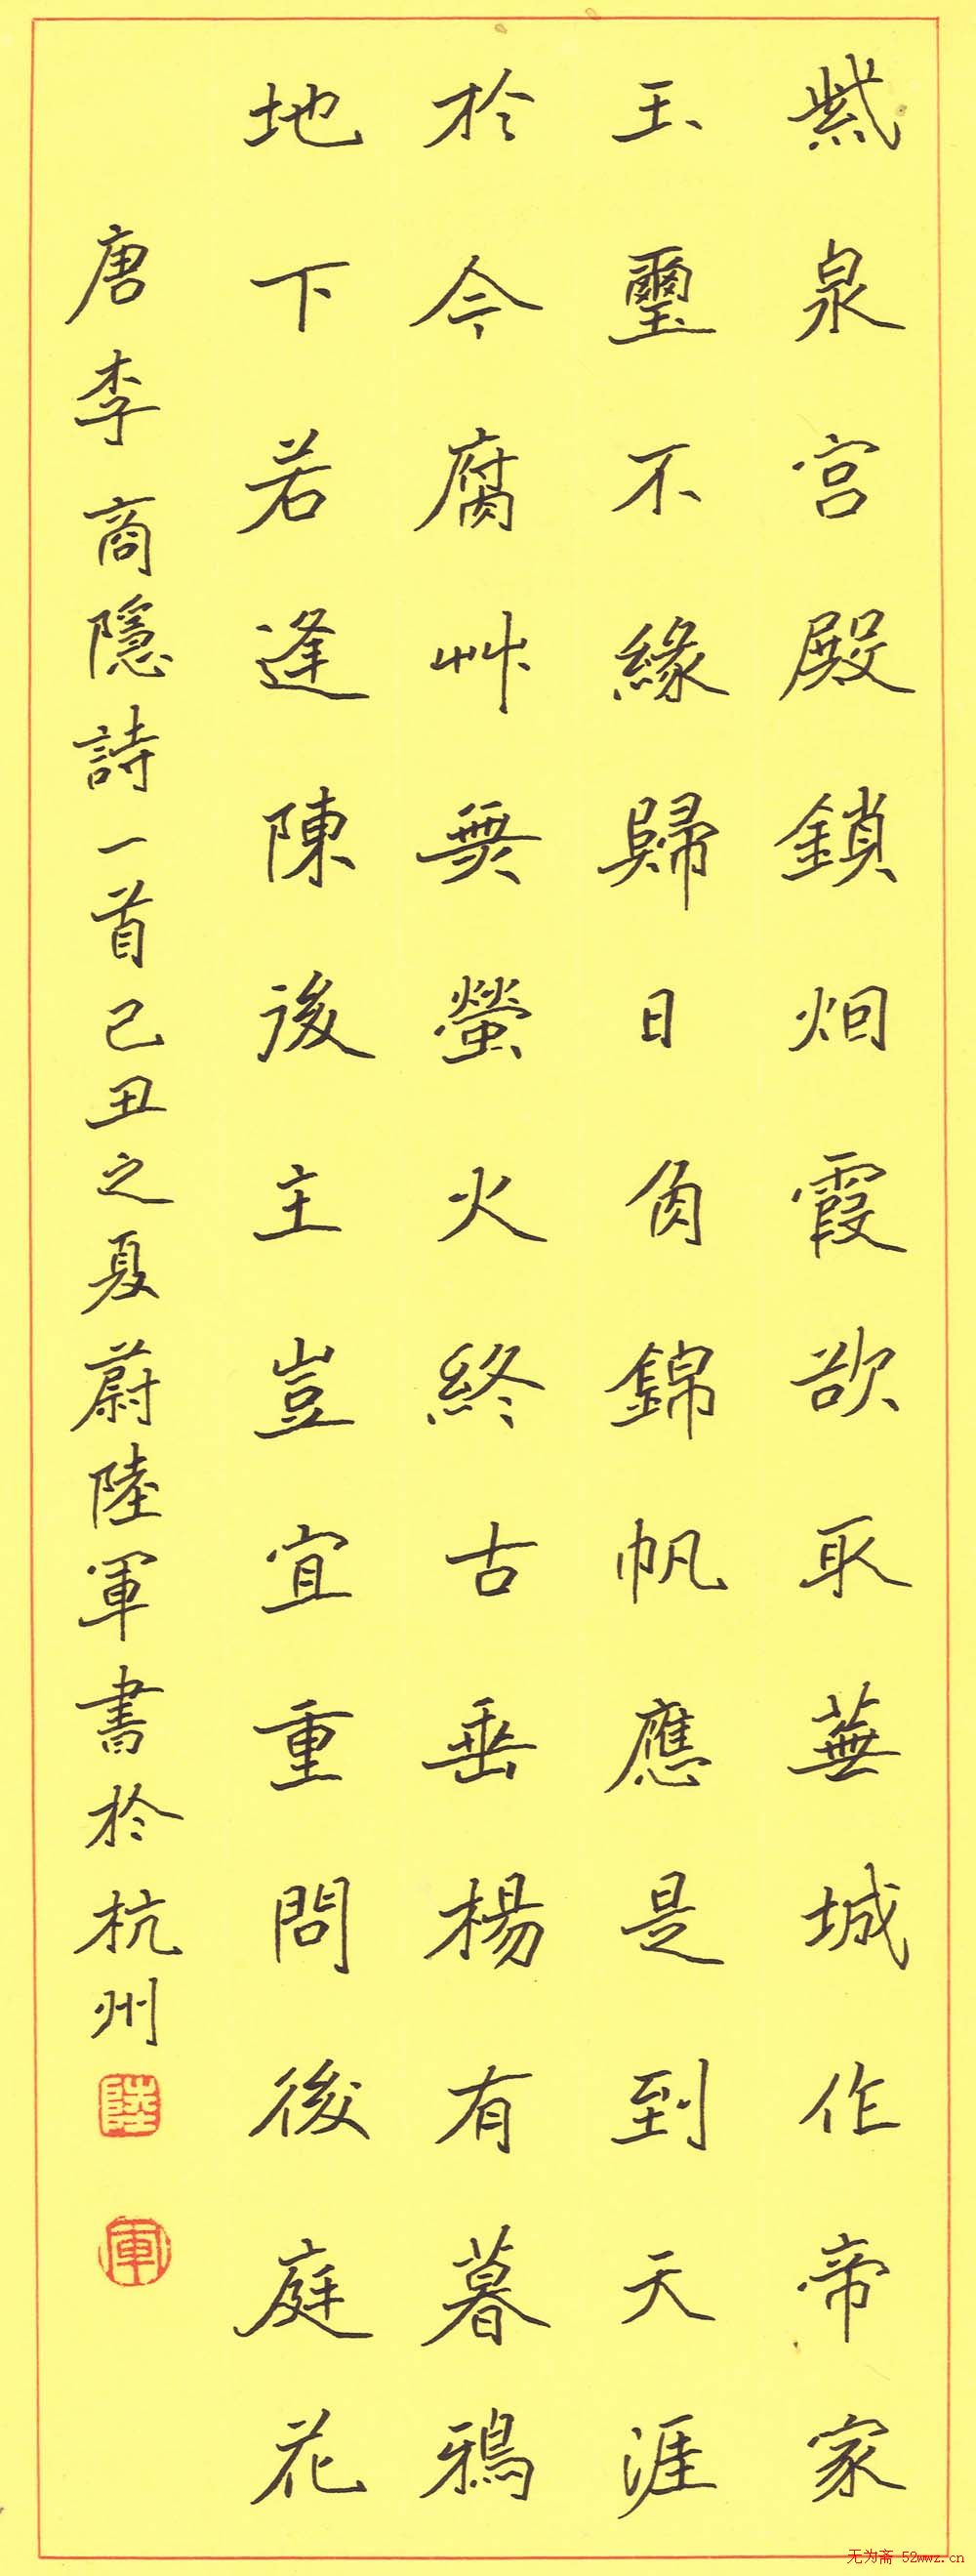 紫泉宮殿鎖烟霞欲取蕪城作帝家
玉璽不緣歸日角錦帆應是到天涯
於今腐艸無螢火終古垂楊有暮鴉
地下若逢陳後主豈宜重問後庭花
唐李商隱詩一首己丑之夏蔚陸軍書於杭州
陸
軍
无为斋 52wwz.cn